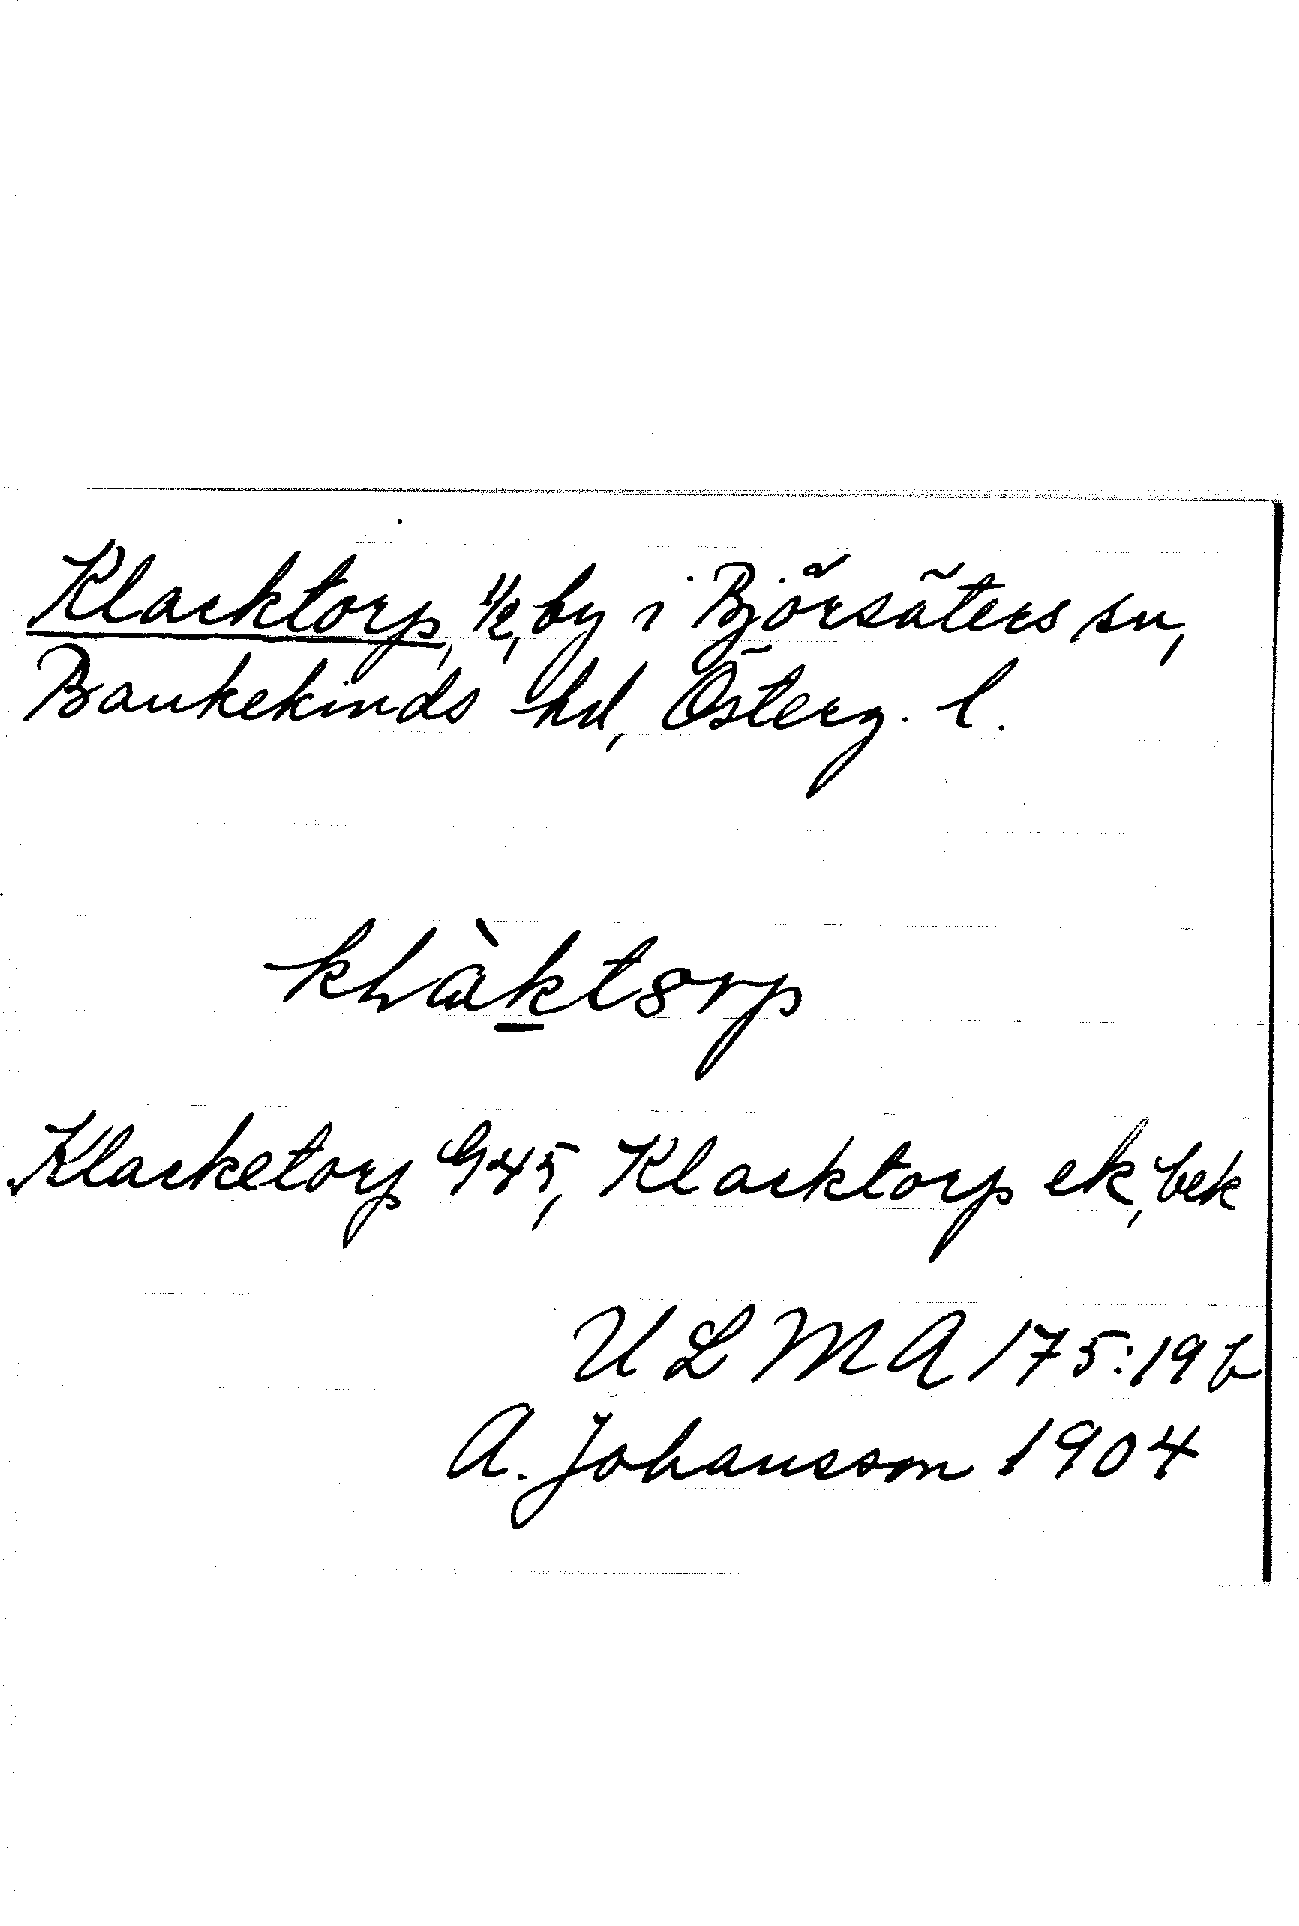 Klacktorp, 1/2, by i Björsäters sn,
Bankekinds hd, Österg. l.
Klacketorp 945, Klacktorp ek, bek
ULMA 175:19b
A. Johansson 1904